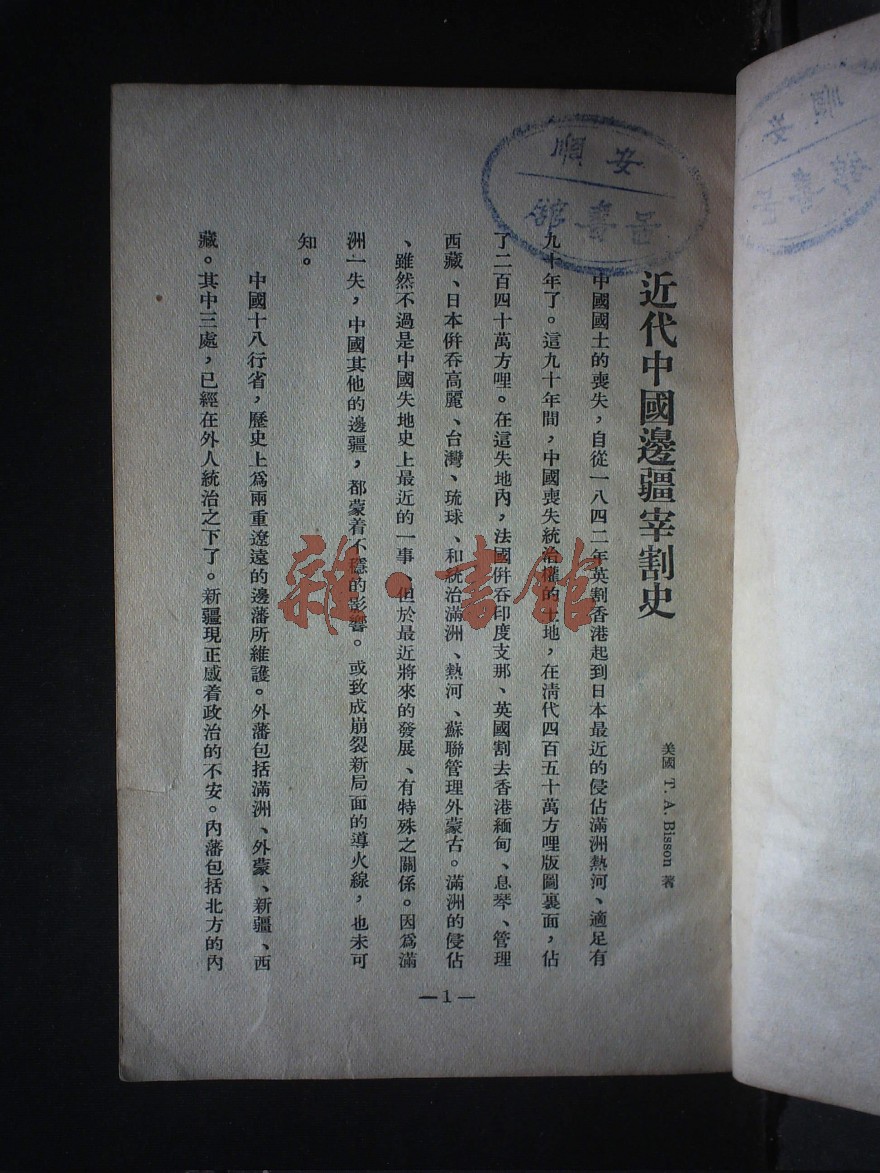 近代中國邊疆宰割史
美國 T. A. Bisson 著
中國國土的喪失，自從一八四二年英割香港起到日本最近的侵佔滿洲熱河、適足有
九十年了。這九十年間，中國喪失統治權的土地，在清代四百五十萬方哩版圖裏面，佔
了二百四十萬方哩。在這失地內，法國併吞印度支那、英國割去香港緬甸、息琴、管理
西藏、日本併吞高麗、台灣、琉球、和統治滿洲、熱河、蘇聯管理外蒙古。滿洲的侵佔
、雖然不過是中國失地史上最近的一事、但於最近將來的發展、有特殊之關係。因爲滿
洲一失，中國其他的邊疆，都蒙着不穩的影響。或致成崩裂新局面的導火線，也未可
知。
中國十八行省，歷史上爲兩重遼遠的邊藩所維護。外藩包括滿洲、外蒙、新疆、西
藏。其中三處，已經在外人統治之下了。新疆現正感着政治的不安。內藩包括北方的內
—1—
安順
圕書館
雜·書館